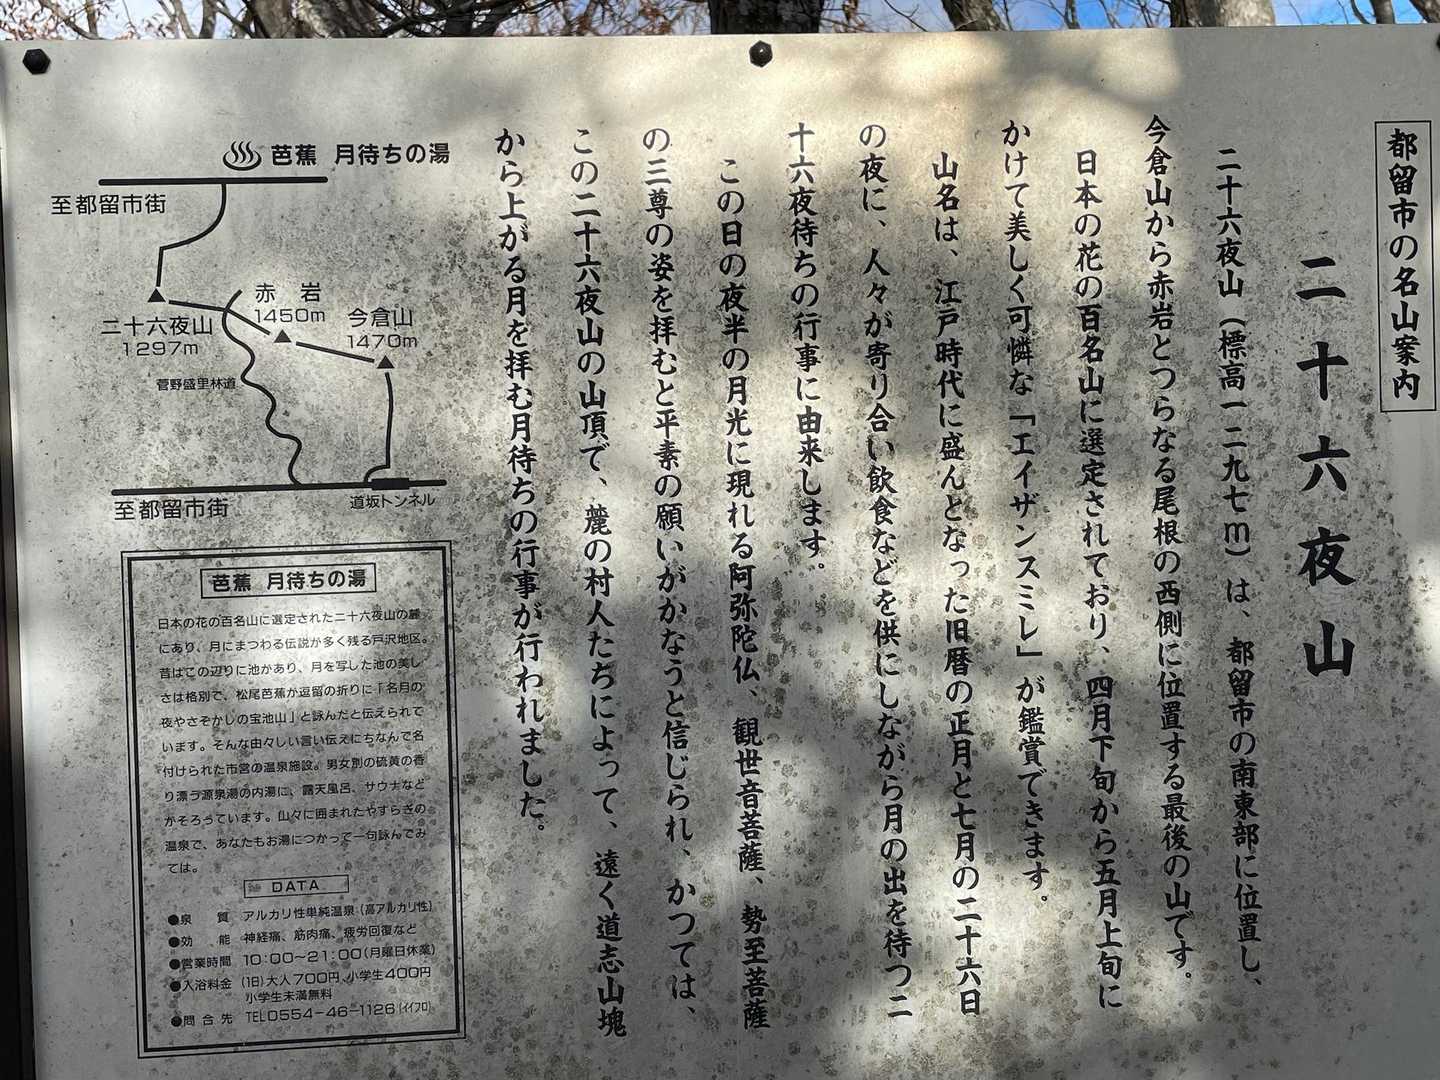 都留市の名山案内
二十六夜山
二十六夜山（標高一二九七ｍ）は、都留市の南東部に位置し、
今倉山から赤岩とつらなる尾根の西側に位置する最後の山です。
日本の花の百名山に選定されており、四月下旬から五月上旬に
かけて美しく可憐な「エイザンスミレ」が鑑賞できます。
山名は、江戸時代に盛んとなった旧暦の正月と七月の二十六日
の夜に、人々が寄り合い飲食などを供にしながら月の出を待つ二
十六夜待ちの行事に由来します。
この日の夜半の月光に現れる阿弥陀仏、観世音菩薩、勢至菩薩
の三尊の姿を拝むと平素の願いがかなうと信じられ、かつては、
この二十六夜山の山頂で、麓の村人たちによって、遠く道志山塊
から上がる月を拝む月待ちの行事が行われました。
芭蕉 月待ちの湯
至都留市街
赤 岩
1450m
今倉山
1470m
二十六夜山
1297m
菅野盛里林道
至都留市街
道坂トンネル
芭蕉 月待ちの湯
日本の花の百名山に選定された二十六夜山の麓
にあり、月にまつわる伝説が多く残る戸沢地区。
昔はこの辺りに池があり、月を写した池の美し
さは格別で、松尾芭蕉が逗留の折りに「名月の
夜やさぞかしの宝池山」と詠んだと伝えられて
います。そんな由々しい言い伝えにちなんで名
付けられた市営の温泉施設。男女別の硫黄の香
り漂う源泉湯の内湯に、露天風呂、サウナなど
がそろうています。仏々に囲まれたやすらぎの
温泉で、あなたもお湯につかって一句詠んでみ
ては。
DATA
●泉 質 アルカリ性単純温泉（高アルカリ性）
●効 能 神経痛、筋肉痛、疲労回復など
●営業時間 10:00～21:00（月曜日休業）
●入浴料金 （1日）大人700円、小学生400円
小学生未満無料
●問合先 TEL0554-46-1126（イイフロ）